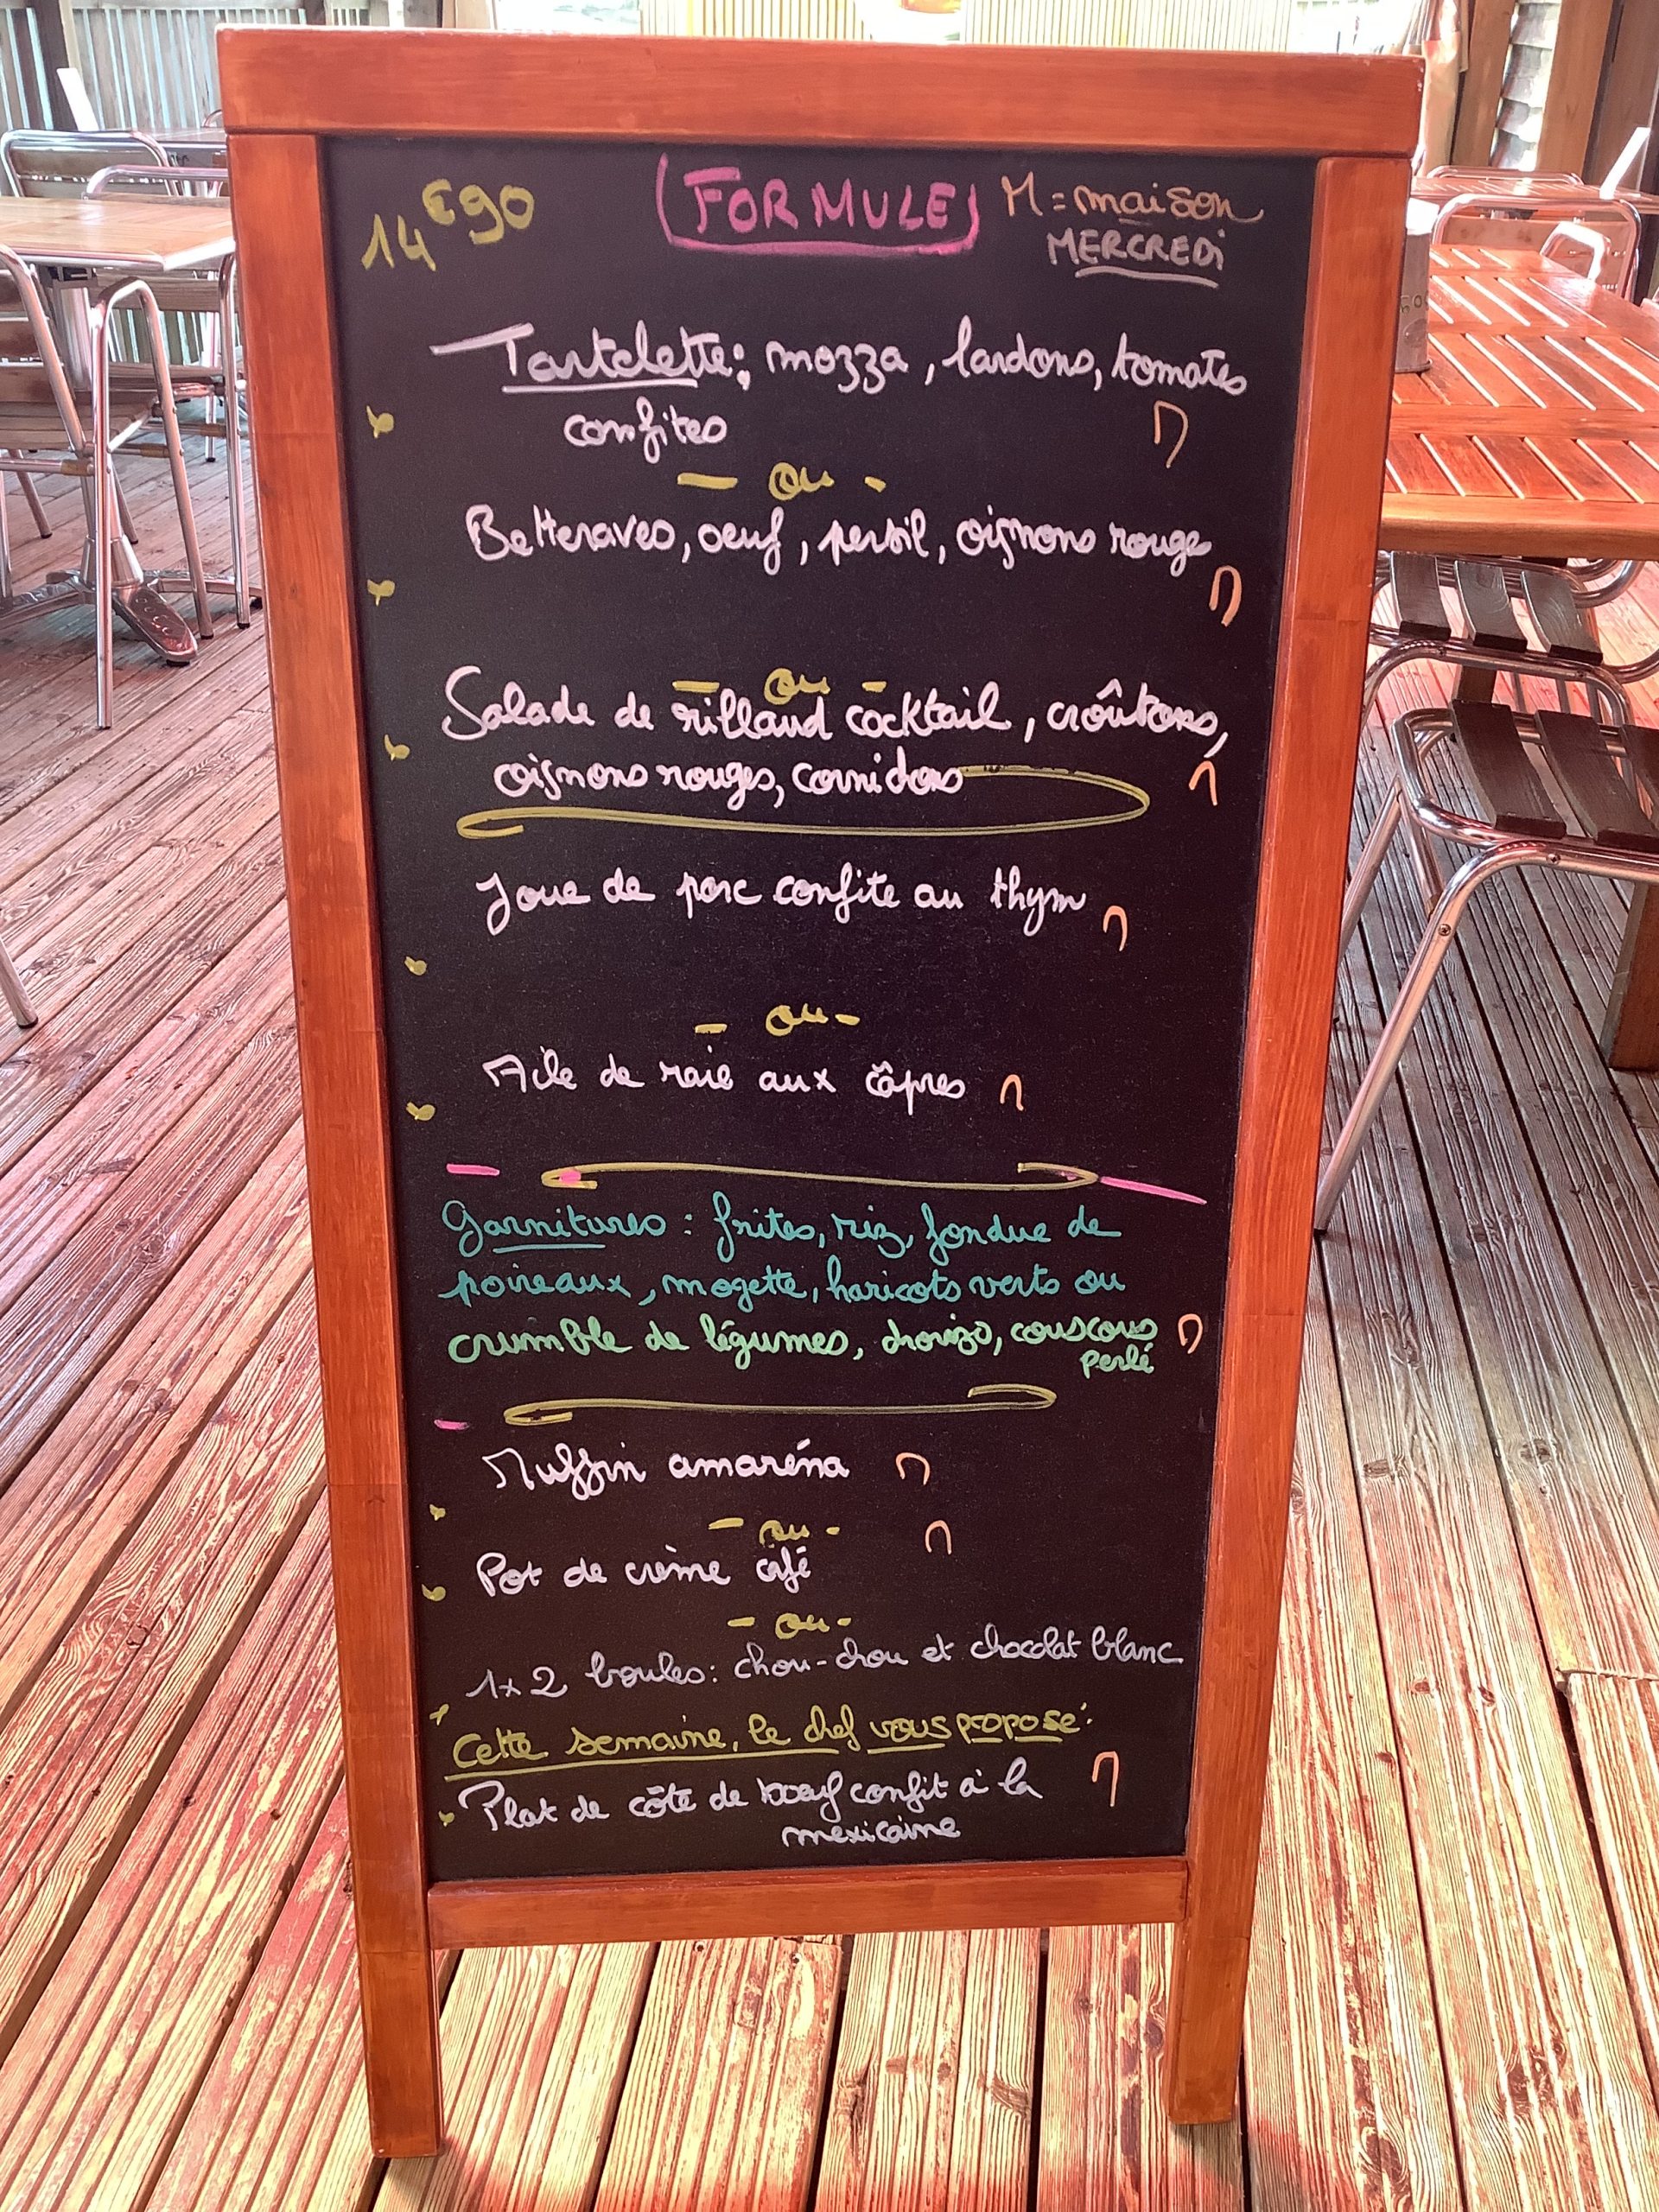 14€90 (FORMULE) M = maison
MERCREDi
Tartelette: mozza, lardons, tomates
confites M
- ou -
Betteraves, oeuf, persil, oignons rouges
M
- ou -
Salade de rillaud cocktail, croûtons,
oignons rouges, cornichons M
Joue de porc confite au thym M
- ou -
Aile de raie aux câpres M
Garnitures : frites, riz, fondue de
poireaux, mogette, haricots verts ou
crumble de légumes, chorizo, couscous M
perlé
Muffin amaréna M
- ou - M
Pot de crème café
- ou -
1x2 boules: chou-chou et chocolat blanc
Cette semaine, le chef vous propose:
Plat de côte de boeuf confit à la M
mexicaine